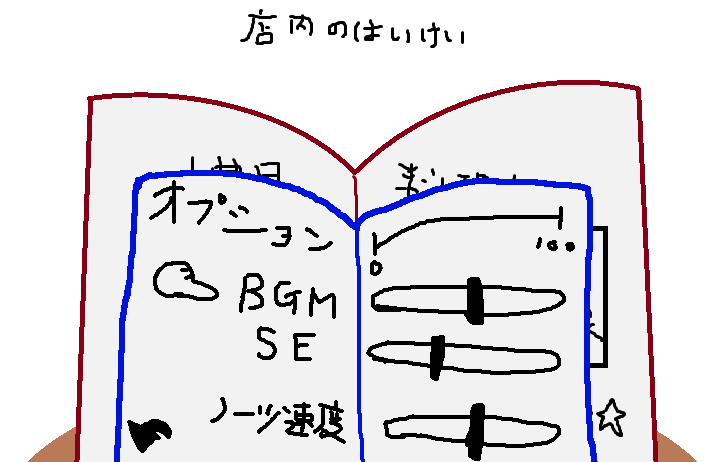 店内のはいけい
オプション
0 100
BGM
SE
ノーツ速度